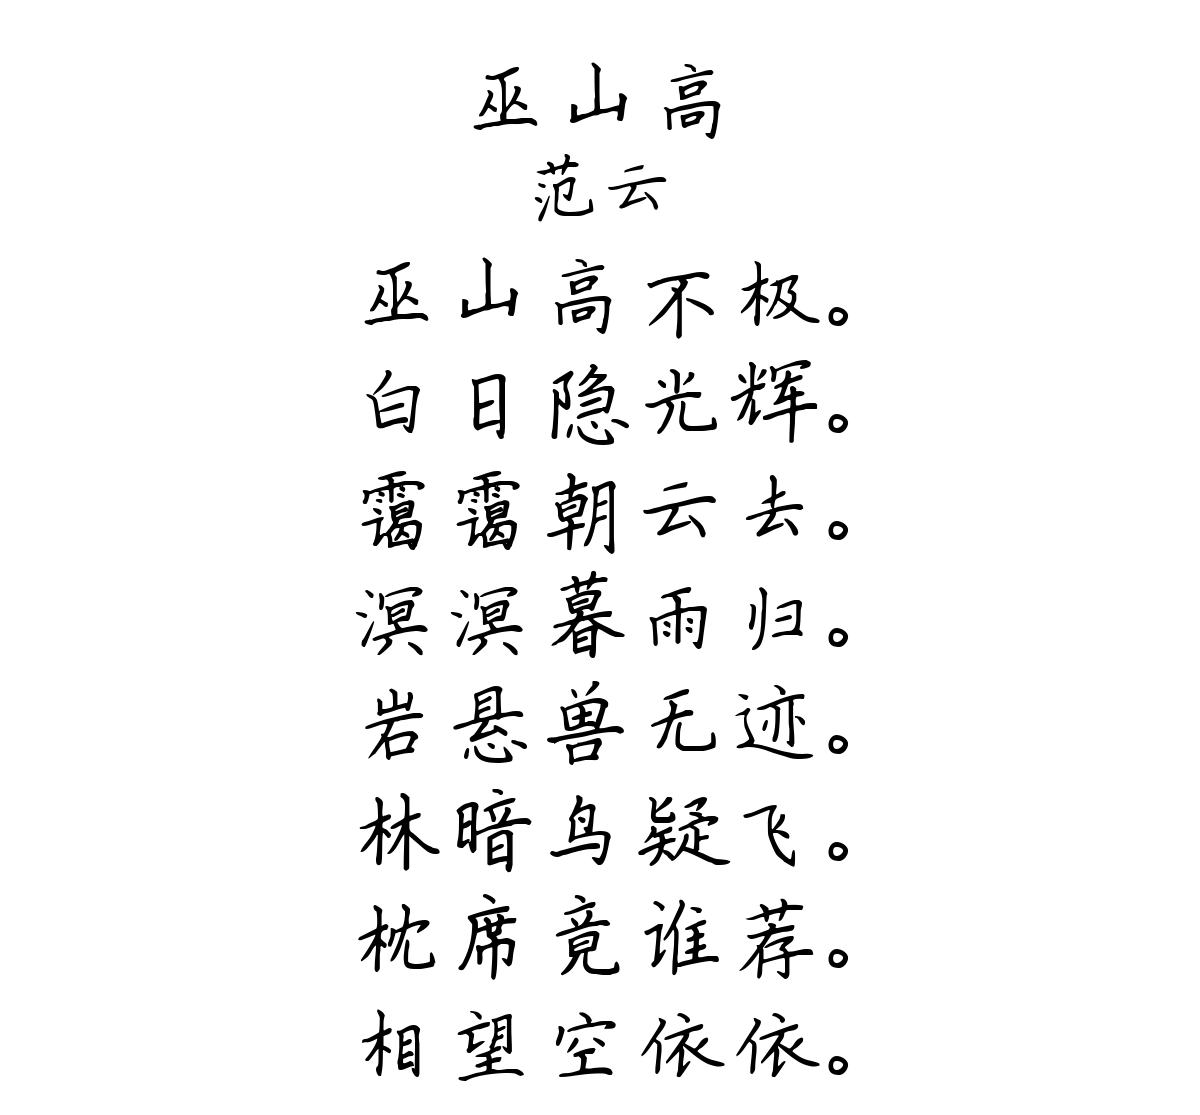 巫山高
范云
巫山高不极。
白日隐光辉。
霭霭朝云去。
溟溟暮雨归。
岩悬兽无迹。
林暗鸟疑飞。
枕席竟谁荐。
相望空依依。